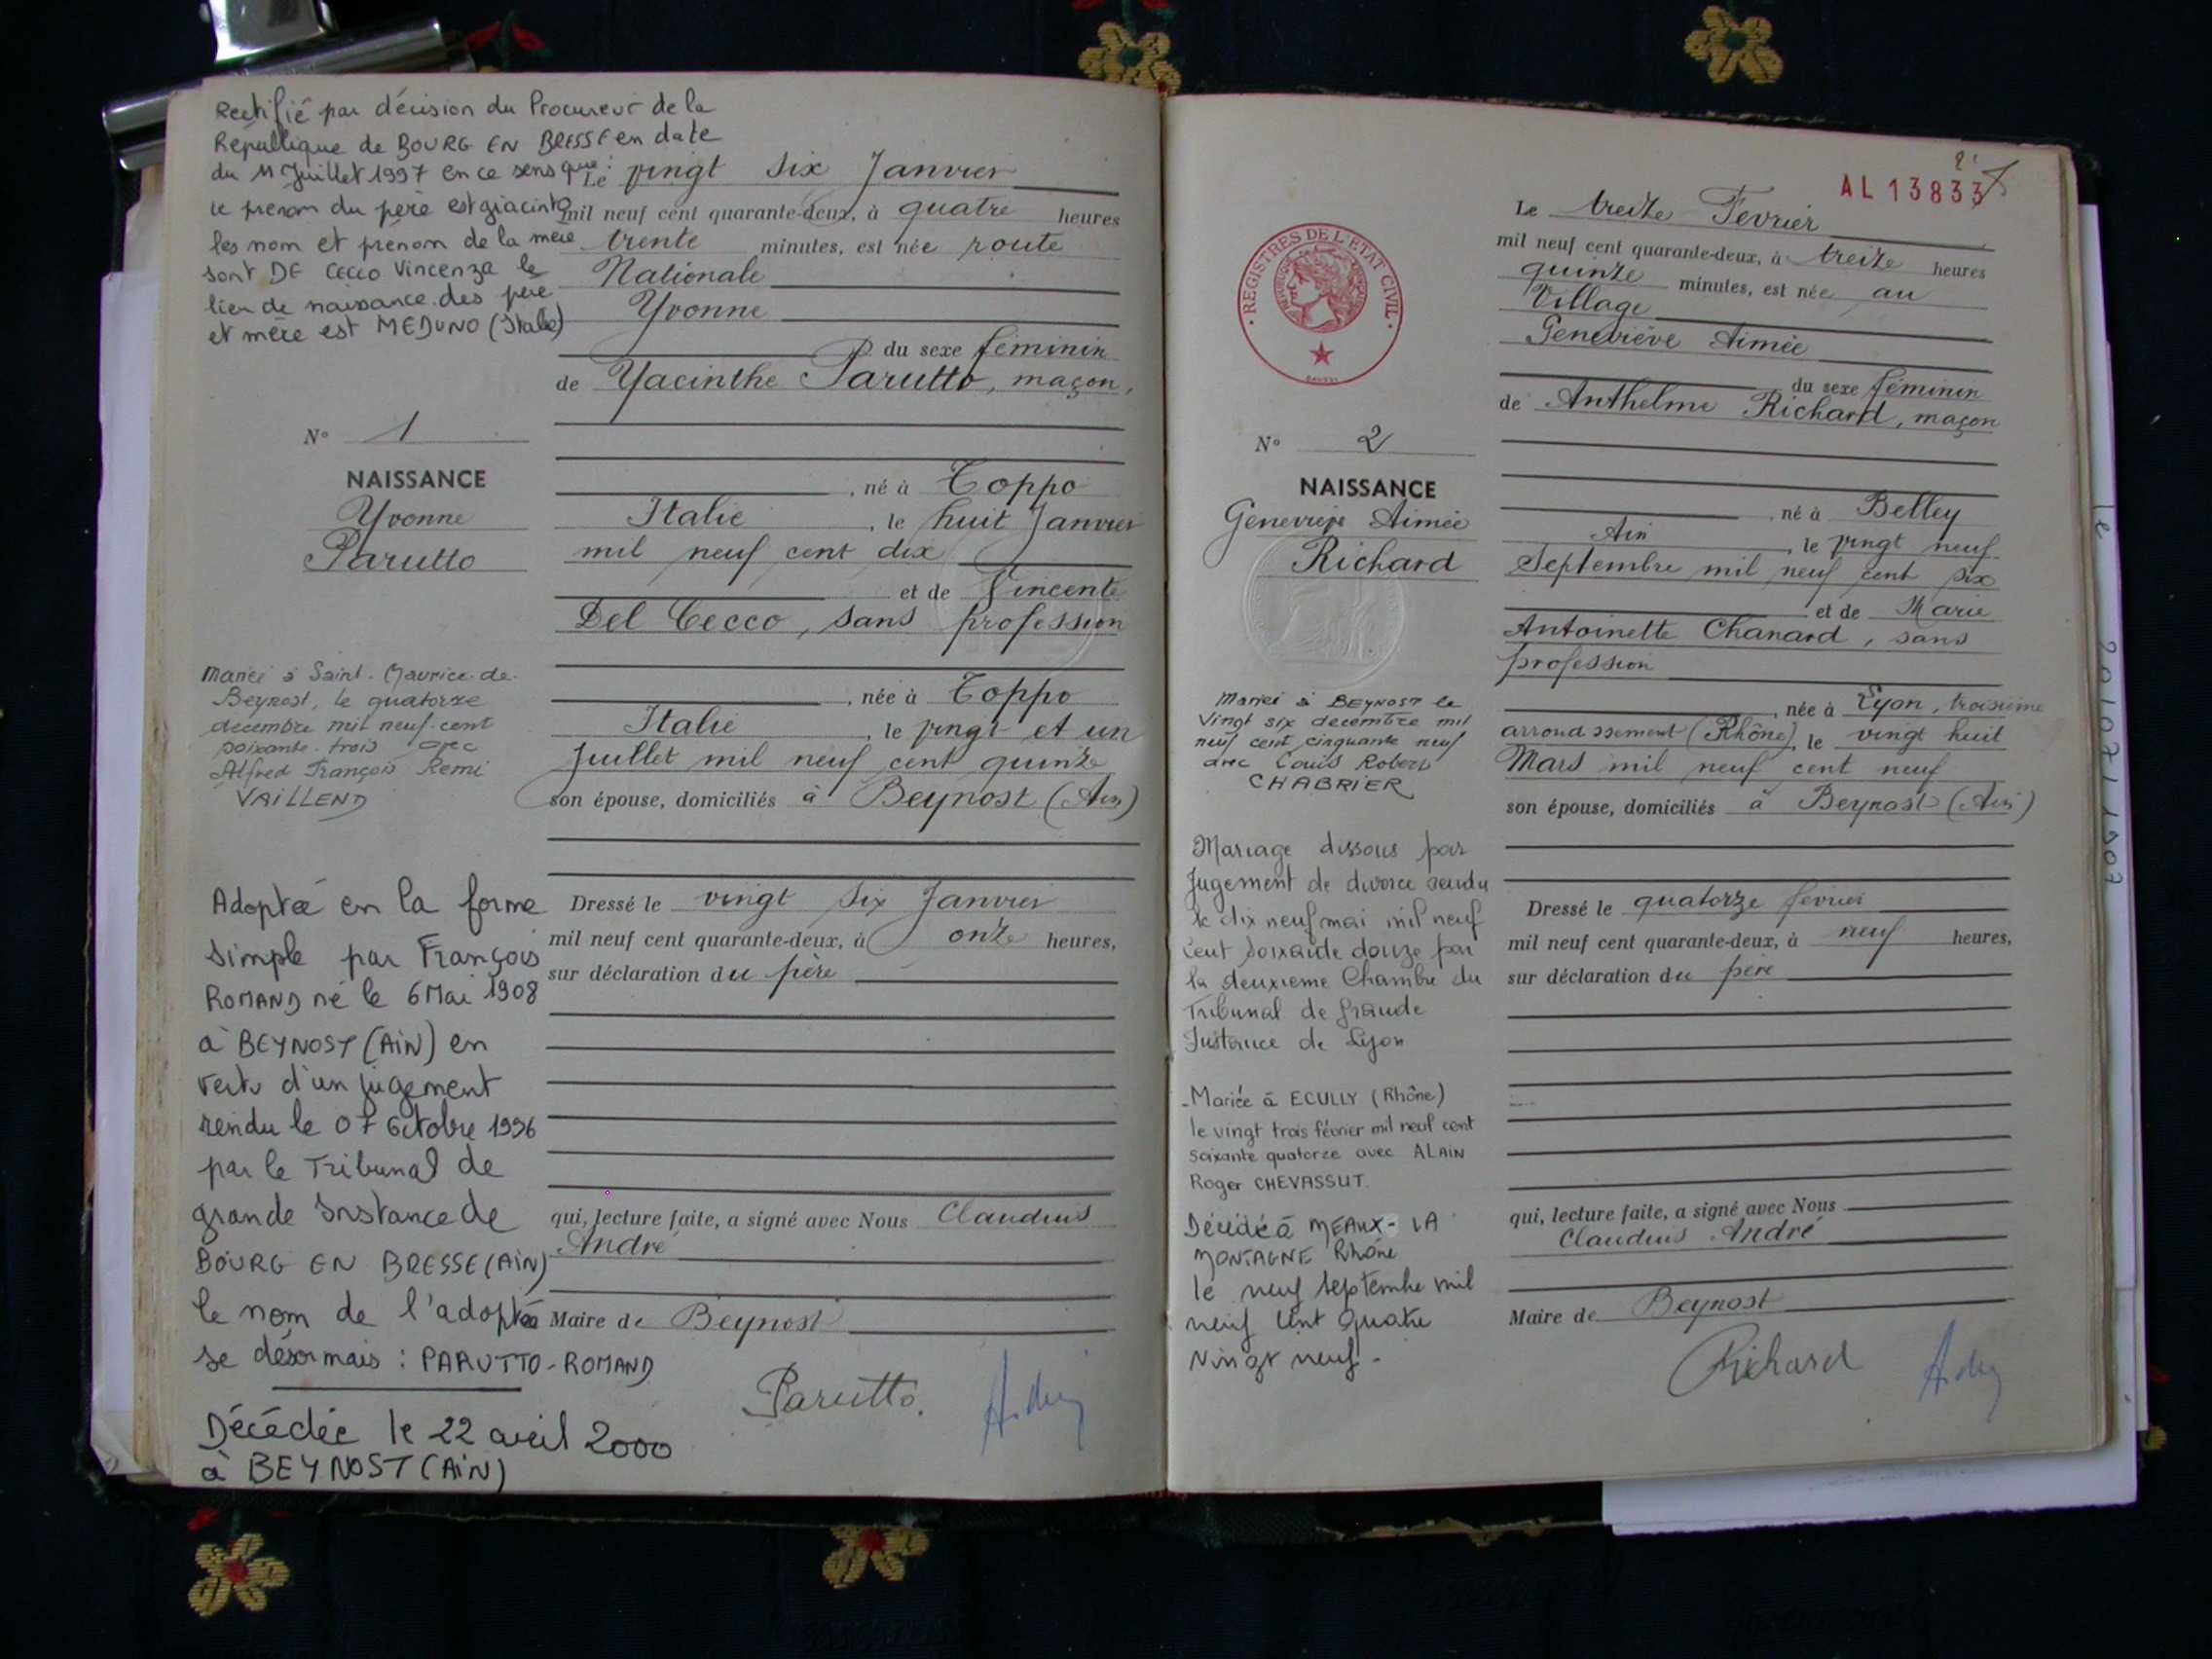 Rectifié par décision du Procureur de la
République de BOURG EN BRESSE en date
du 11 Juillet 1997 en ce sens que :
le prénom du père est giacinto
les nom et prénom de la mère
sont DE CECCO Vincenza le
lieu de naissance des père
et mère est MEDUNO (Italie)
N° 1
NAISSANCE
Yvonne
Parutto
Mariée à Saint-Maurice-de-
Beynost, le quatorze
décembre mil neuf cent
soixante-trois avec
Alfred François Remi
VAILLEND
Adoptée en la forme
simple par François
ROMAND né le 6 Mai 1908
à BEYNOST (AIN) en
vertu d'un jugement
rendu le 07 octobre 1996
par le Tribunal de
grande Instance de
BOURG EN BRESSE (AIN)
le nom de l'adoptée
se désormais : PARUTTO-ROMAND
Décédée le 22 avril 2000
à BEYNOST (AIN)
Le vingt six Janvier
mil neuf cent quarante-deux, à quatre heures
trente minutes, est née route
Nationale
Yvonne
du sexe féminin
de Yacinthe Parutto, maçon,
, né à Toppo
Italie, le huit Janvier
mil neuf cent dix
et de Vincente
Del Cecco, sans profession
, née à Toppo
Italie, le vingt et un
Juillet mil neuf cent quinze
son épouse, domiciliés à Beynost (Ain)
Dressé le vingt six Janvier
mil neuf cent quarante-deux, à onze heures,
sur déclaration du père
qui, lecture faite, a signé avec Nous Claudius
André
Maire de Beynost
Parutto.
AL 13833
REGISTRES DE L'ETAT CIVIL
N° 2
NAISSANCE
Geneviève Aimée
Richard
Mariée à BEYNOST le
Vingt six décembre mil
neuf cent cinquante neuf
avec Louis Robert
CHABRIER
Mariage dissous par
Jugement de divorce rendu
le dix neuf mai mil neuf
cent soixante douze par
la deuxième Chambre du
Tribunal de grande
Instance de Lyon
Mariée à ECULLY (Rhône)
le vingt trois février mil neuf cent
soixante quatorze avec ALAIN
Roger CHEVASSUT.
Décédée à MEAUX-LA
MONTAGNE Rhône
le neuf septembre mil
neuf cent quatre
vingt neuf-
Le treize Fevrier
mil neuf cent quarante-deux, à treize heures
quinze minutes, est née au
Village
Geneviève Aimée
du sexe féminin
de Anthelme Richard, maçon
, né à Belley
Ain, le vingt neuf
Septembre mil neuf cent six
et de Marie
Antoinette Chanard, sans
profession
, née à Lyon, troisième
arrondissement (Rhône), le vingt huit
Mars mil neuf cent neuf
son épouse, domiciliés à Beynost (Ain)
Dressé le quatorze fevrier
mil neuf cent quarante-deux, à neuf heures,
sur déclaration du père
qui, lecture faite, a signé avec Nous
Claudius André
Maire de Beynost
Richard